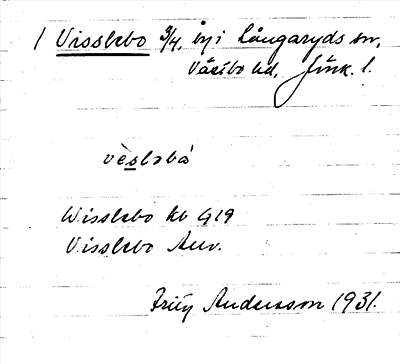 / Visslebo 3/4, by i Långaryds sn,
Västbo hd, Jönk. l.
vèslɘbá
Wisslebo kb 919
Visslebo Anv.
Fritz Andersson 1931.